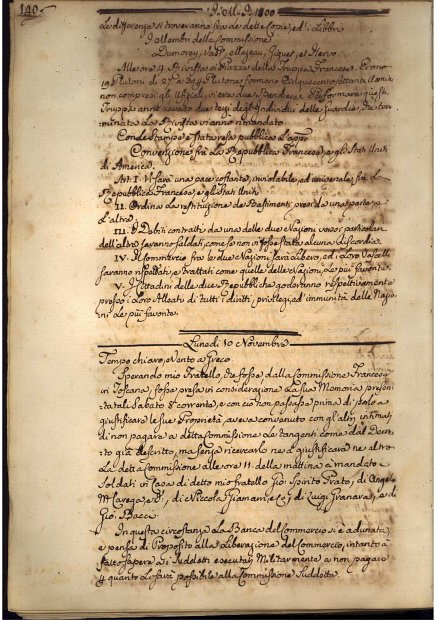 140
1800
Le differenze si troveranno fra de delle Copie, ed i Libbri
I Membri della Commissione
Alle ore 4 Rivista in Piazza della Truppa Francese. Erano
19 Plutoni di 27 a 30 Plutone formano Cinquecento settanta Uomini
non compresi gli Ufficiali, v'era due Bandiere. Per formare questi
Truppa anno avuto due terzi degl'Individui delle Guardie. Per ter=
minata La Rivista vi anno rimandato
Con delle Stampe è Stata resa pubblica L'app.
Convenzione frà La Repubblica Francese, e gli Stati Uniti
di America.
Art. I. Vi sarà una pace costante, inviolabile, ed universale, frà La
Repubblica Francese, e gli Stati Uniti
II. Ordina La restituzione de Bastimenti presi da una parte, e
L'altra
III. I Debiti contratti da una delle due Nazioni verso i particolari
dell'altra saranno saldati, come se non vi fosse stata alcuna discordia.
IV. Il Commercio frà le due Nazioni sarà Libero, ed i Loro Vascelli
saranno rispettati, e trattati come quelle delle Nazioni, Le più favorite
V. I Cittadini delle due Repubbliche godaranno rispettivamente
presso i Loro Alleati di tutti i diritti, privilegi, ed immunità delle Nazio=
ni Le più favorite.
Lunedì 10 Novembre
Tempo chiaro, e Vento a Greco
Sperando mio Fratello, che fosse dalla Commissione Francese
in Toscana, fosse presa in considerazione La sua Memoria presen=
tata Sabato 8 corrente, e con ciò non passasse prima di
giustificare le sue Proprietà, aveva convenuto con gl'altri intimati
di non pagare a detta Commissione Le tangenti come dal Decre=
to già descritto, ma senza ricercarlo ne a giustificare ne altro
La detta Commissione alle ore 11. della mattina à mandato
Soldati in Casa di detto mio fratello Gio: Spirito Prato, di Angelo
M. Carega, e di Niccola Giamari, e C. di Luigi Granara, e di
Gio: Bacci
In questa circostanza La Banca del Commercio si è adunata,
e pensa di Proposito alla Liberazione del Commercio, intanto à
fatto sapere ai suddetti esecutati Militarmente a non pagare
e quanto Li sarà possibile alla Commissione Suddetta.